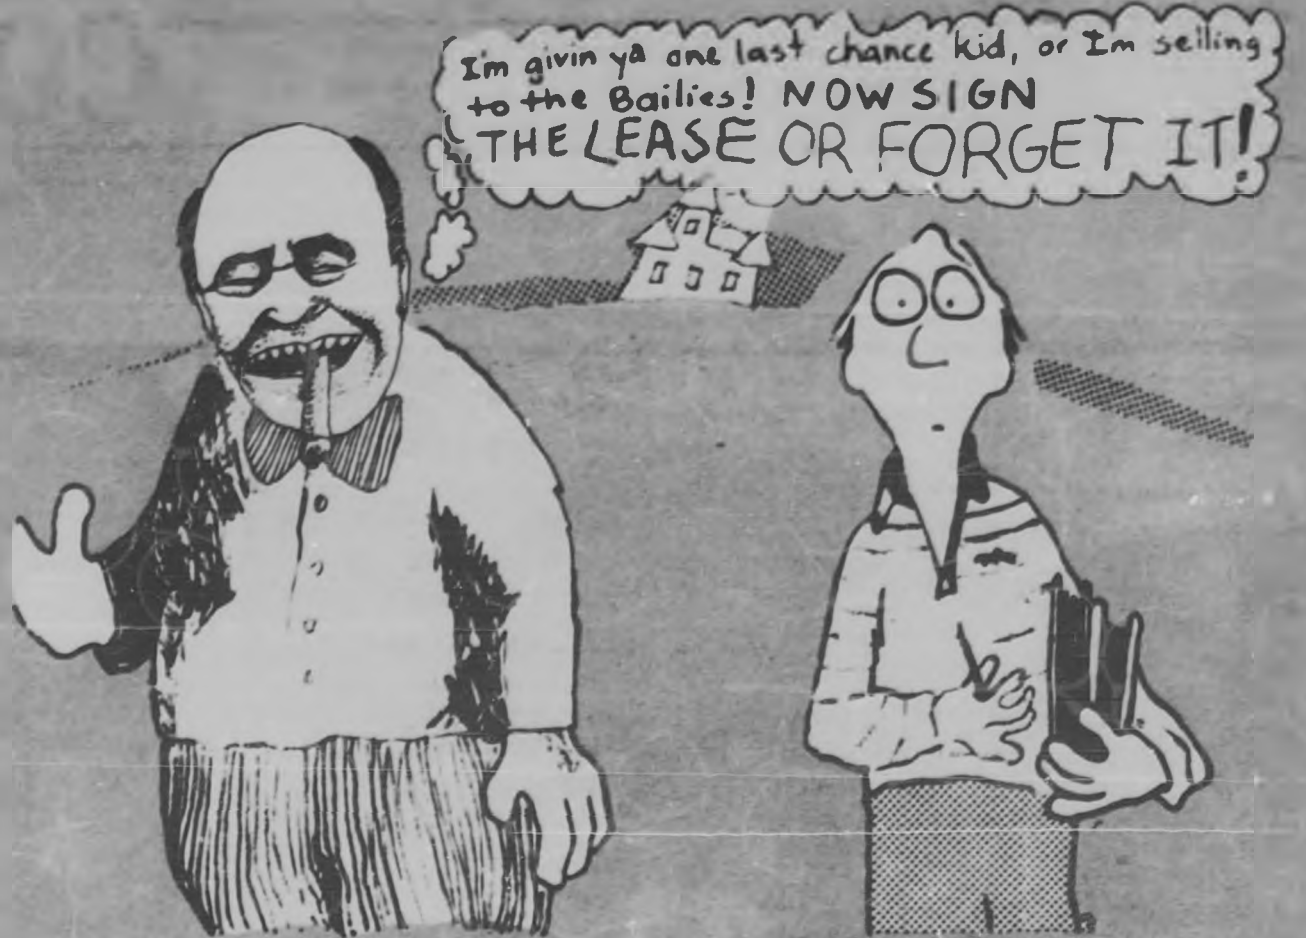 I'm givin ya one last chance kid, or I'm selling
to the Bailies! NOW SIGN
THE LEASE OR FORGET IT!